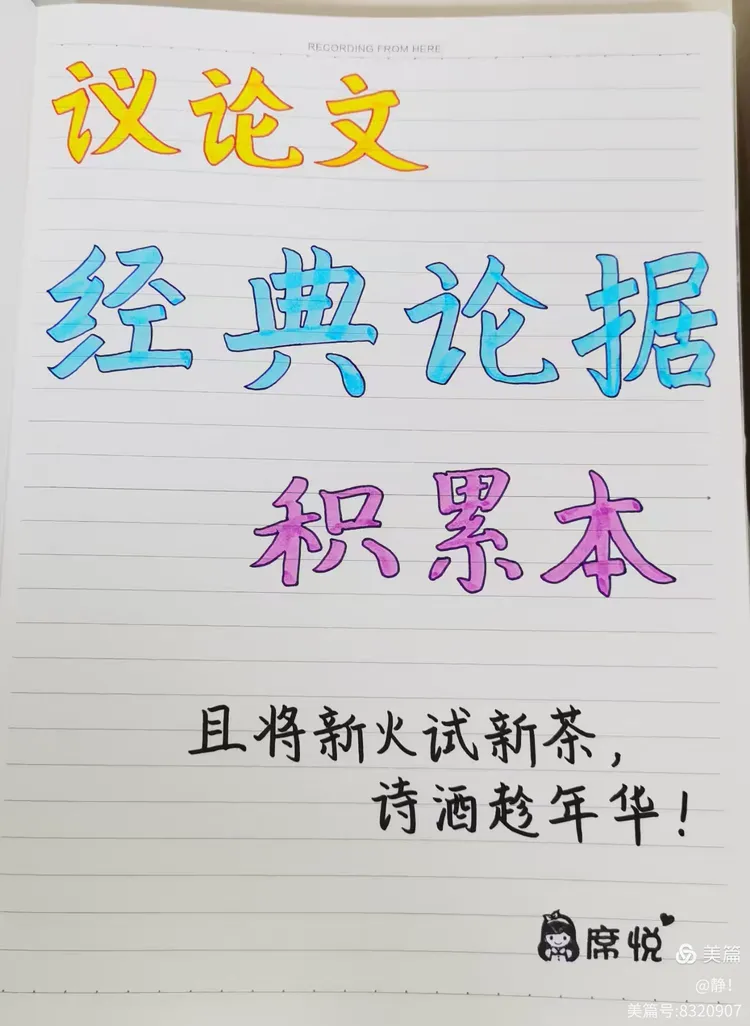 RECORDING FROM HERE
议论文
经典论据
积累本
且将新火试新茶，
诗酒趁年华！
席悦
美篇
@静！
美篇号:8320907